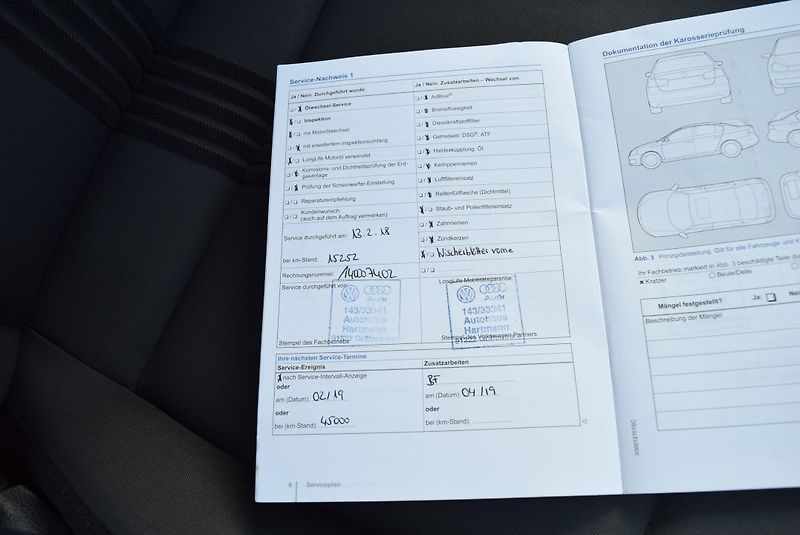 Service-Nachweis 1
Ja / Nein: Durchgeführt wurde:
Ölwechsel-Service
Inspektion
mit Motorölwechsel
mit erweitertem Inspektionsumfang
LongLife Motoröl verwendet
Korrosions- und Dichtheitsprüfung der Erd-
gasanlage
Prüfung der Scheinwerfer-Einstellung
Reparaturempfehlung
Kundenwunsch
(auch auf dem Auftrag vermerken)
Service durchgeführt am: 13.2.18
bei km-Stand: 15252
Rechnungsnummer: 140007402
Service durchgeführt von:
Audi
143/33341
Autohaus
Hartmann
Stempel des Fachbetriebs
Ja / Nein: Zusatzarbeiten – Wechsel von:
AdBlue®
Bremsflüssigkeit
Dieselkraftstofffilter
Getriebeöl: DSG®, ATF
Haldexkupplung: Öl
Keilrippenriemen
Luftfiltereinsatz
Reifenfüllflasche (Dichtmittel)
Staub- und Pollenfiltereinsatz
Zahnriemen
Zündkerzen
Wischerblätter vorne
LongLife Mobilitätsgarantie
Audi
143/33341
Autohaus
Hartmann
Stempel des Volkswagen Partners
Ihre nächsten Service-Termine
Service-Ereignis
nach Service-Intervall-Anzeige
oder
am (Datum): 02/19
oder
bei (km-Stand): 45000
Zusatzarbeiten
BF
am (Datum): 04/19
oder
bei (km-Stand):
6 Serviceplan
Dokumentation der Karosserieprüfung
Abb. 3 Prinzipdarstellung. Gilt für alle Fahrzeuge und
Ihr Fachbetrieb markiert in Abb. 3 beschädigte Teile
× Kratzer
○ Beule/Delle
Mängel festgestellt? Ja:
Beschreibung der Mängel: